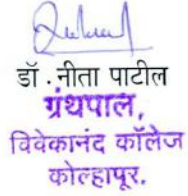 डॉ. नीता पाटील
ग्रंथपाल,
विवेकानंद कॉलेज
कोल्हापूर.